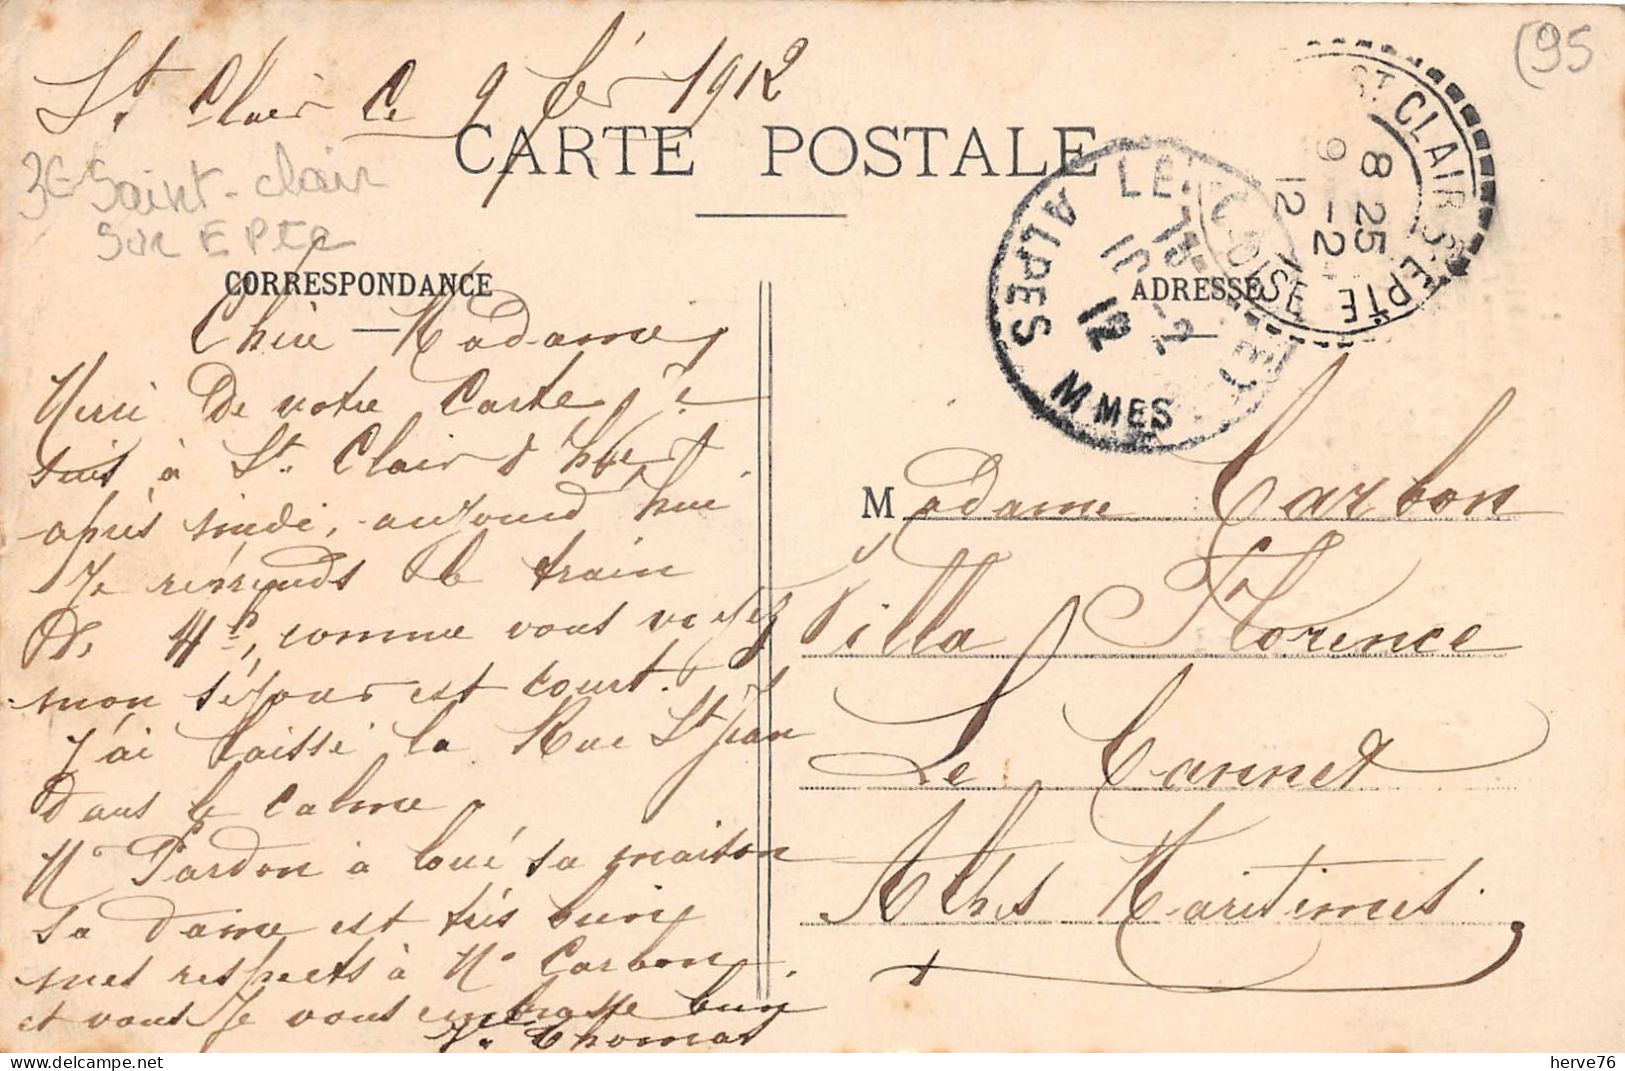 St Clair Ce 9 fév 1912
(95
CARTE POSTALE
3€ Saint-clair
sur EPTE
ST CLAIR S. EPTE
8 25
9 -2
12
Sne-ET-OISE
LE CANNET
15
10 -2
12
ALPES MMES
CORRESPONDANCE
ADRESSE
Chère Madame,
Merci De votre Carte, je
suis à St Clair d'hier
après midi, aujourd'hui
Je reprends le train
De 4h, comme vous voyez
mon séjour est court.
J'ai laissé la Rue St Jean
dans le Calme.
Mr Pardon à loué sa maison
sa dame est très bien
mes respects à Mr Carbon
et vous Je vous embrasse bien
Vve Thomas
Madame Carbon
Villa Florence
Le Cannet
Alpes Maritimes
herve76